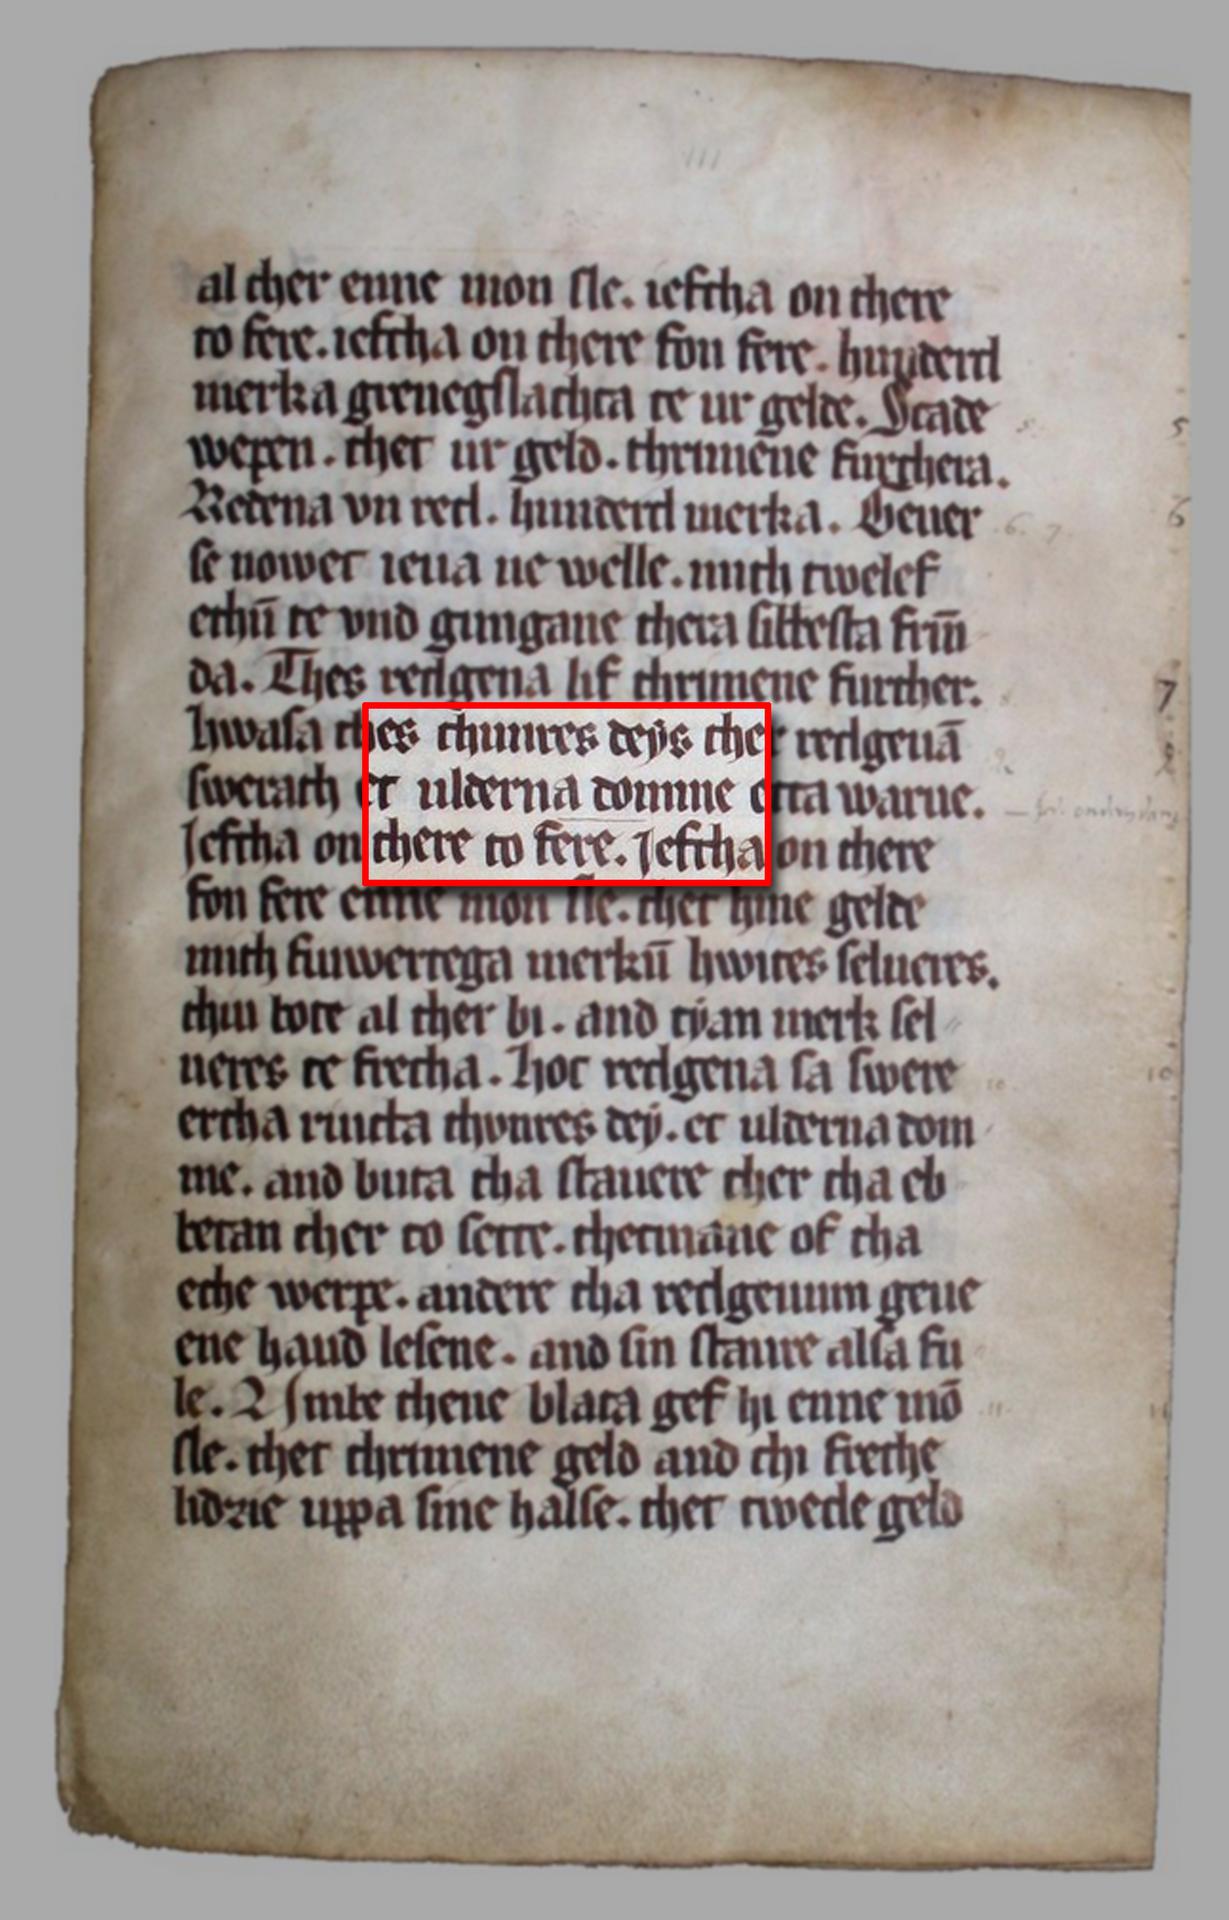 al ther enne mon sle. ieftha on there
to fere. ieftha on there fon fere. hunderd
merka grenegslachta te ur gelde. Scade
wepen. thet ur geld. thrimene furthera.
Redena vn red. hunderd merka. Geuer
se nowet ieua ne welle. mith twelef
ethū te vnd gungane thera sibbesta friū
da. Thes redgena lif thrimene further.
hwasa thes thunres deÿs thet redgenā
swerath et ulderna domme etta warue.
Jeftha on there to fere. Jeftha on there
fon fere enne mon sle. thet hine gelde
mith fiuwertega merkū hwites selueres.
thiu bote al ther bi. and tÿan merk sel
ueres te fretha. hot redgena sa swere
ertha riucht a thvnres deÿ. et ulderna dom
me. and buta tha stauere ther tha eb
betan ther to sette. thetmane of tha
ethe werpe. andere tha redgeuum geue
ene hand lesene. and sin staure alsa fu
le. Umbe thene blata gef hi enne mō
sle. thet thrimene geld and thi frethe
lidzie uppa sine halse. thet twede geld